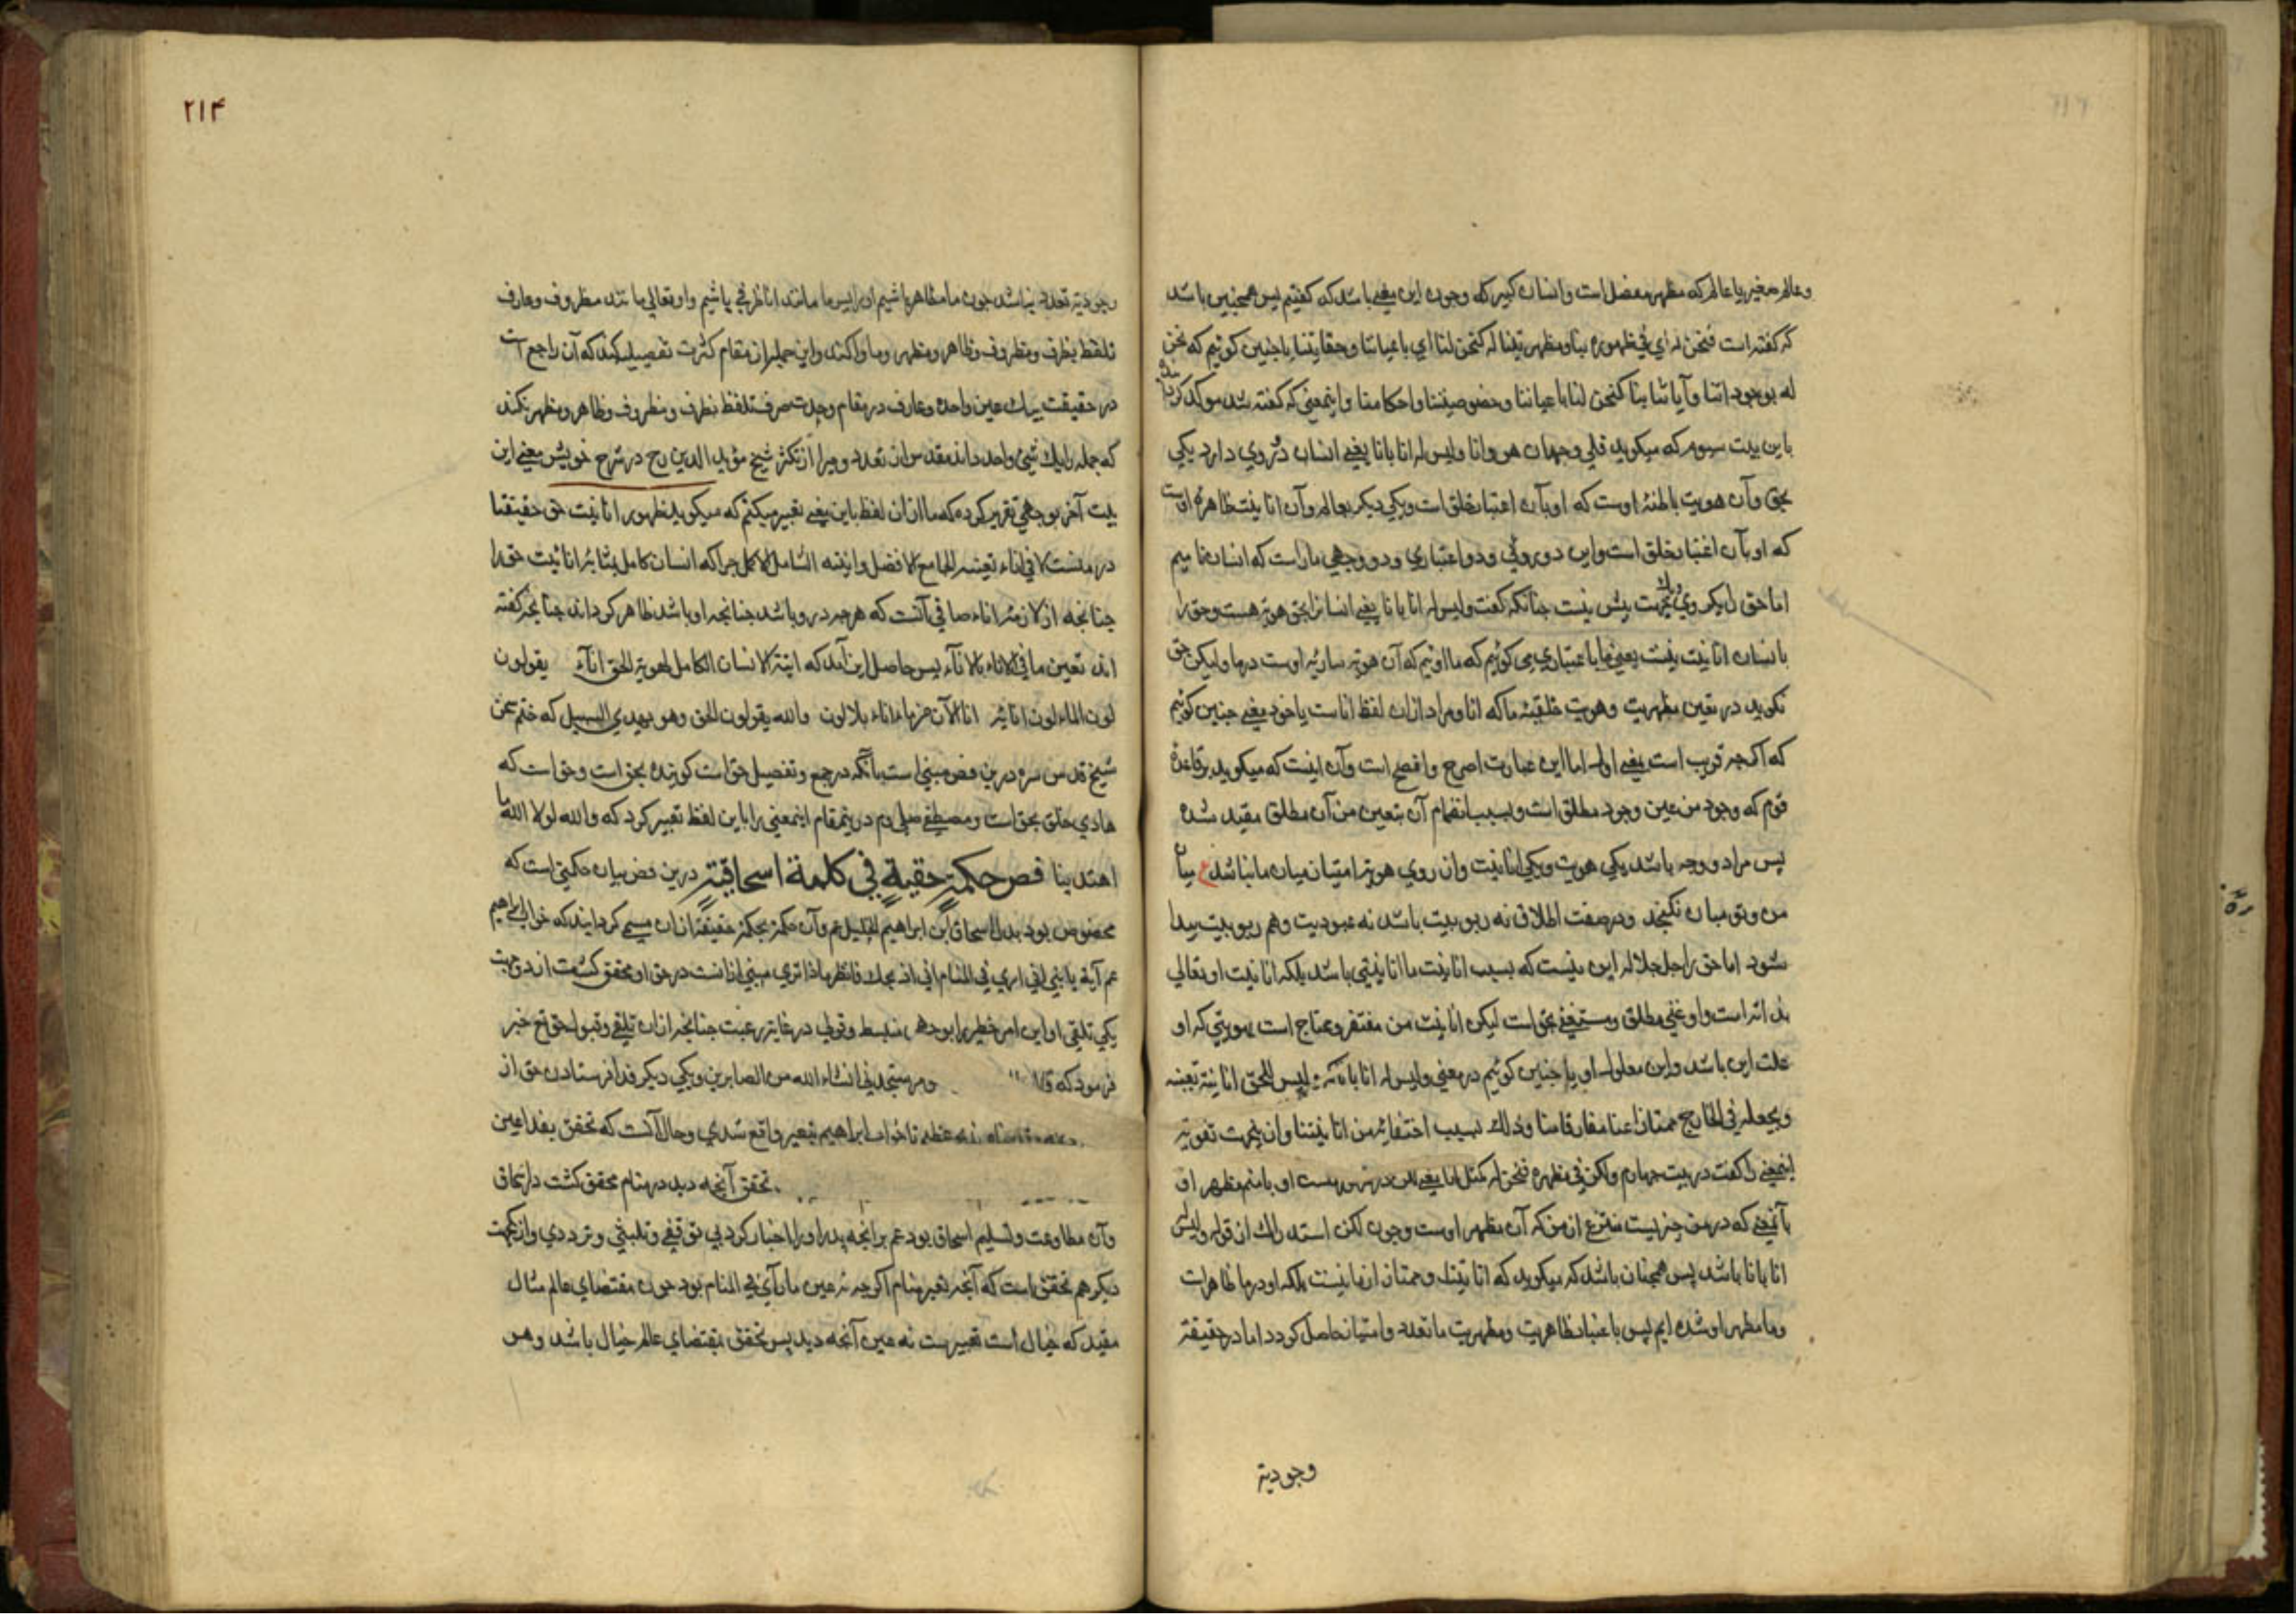 وعالم صغیر یا عالم که مظهر مفصل است وانسان کبیر که وجود این معنی باشد که کفتیم پس همچنین باشد
که کفته است فنحن له ای فی ظهوره بنا ومظهریتنا له کنحن لنا ای باعیاننا وحقایقنا یا چنین کوئیم که نحن
له بوجوداتنا وآیاتنا بنا کنحن لنا باعیاننا وخصوصیتنا واحکامنا واینمعنی که کفته شد موکد کرد
باین بیت سوم که میکوید فلی وجهان هو وانا ولیس له انا بانا یعنی انسان دو روی دارد یکی
بحق وآن هویت باطنهٔ اوست که او بآن اعتبار خلق است ویکی دیکر بعالم وآن انانیت ظاهرهٔ اوست
که او بآن اعتبار خلق است واین دو روئی ودو اعتباری ودو وجهی ماراست که انسان نامیم
اما حق را یکروی ویکجهت بیش نیست چنانکه کفت ولیس له انا بانا یعنی انسانرا بحق هویه هست وحق را
بانسان انانیت نیست یعنی ما باعتباری می کوئیم که ما اوئیم که آن هویه ساریهٔ اوست درما ولیکن حق
نکوید در تعین مظهریت وهویت خلقیهٔ ما که انا ومراد ازان لفظ اناست یا خود معنی چنین کوئیم
که اکرچه قریب است بمعنی اول اما این عبارت اصرح وافصح است وآن اینست که میکوید برقاعدهٔ
قوم که وجود من عین وجود مطلق است وبسبب انضمام آن بتعین من آن مطلق مقید شده
پس مراد دو وجه باشد یکی هویت ویکی انانیت وان روی هویه امتیاز میان ما نباشد ع میان
من وتو میان نکنجد ودر صفت اطلاق نه ربوبیت باشد نه عبودیت وهم ربوبیت پیدا
شود اما حق را جل جلاله این نیست که بسبب انانیت ما انانیتی باشد بلکه انانیت او تعالی
بذاته است واو غنی مطلق ومستغنی بحق است لیکن انانیت من مفتقر ومحتاج است بهویتی که او
علت این باشد واین معلول او یا چنین کوئیم در معنی ولیس له انا بانا که لیس للحق انانیة تعینه
ویجعله فی الخارج ممتازا عنا مفارقا منا وذلک بسبب اختفائه من انانیتنا وازینجهت تقویه
اینمعنی را کفت در بیت چهارم ولکن فی مظهره فنحن له کمثل انا یعنی
بآنمعنی که در من چیزیست متنزع از من که آن مظهر اوست وچون لکن استدراک از قوله ولیس له
انا بانا باشد پس همچنان باشد که میکوید که انانیتک وممتاز از ما نیست بلکه او درما ظاهرات
وما مظهر او شده ایم پس باعتبار ظاهریت ومظهریت ما تعدد وامتیاز حاصل کردد اما در حقیقة
وجودیة
۲۱۴
وجودیة تعدد نباشد چون ما مظاهر باشیم اورا پس ما مانند اناء ظرفی باشیم واو تعالی مانند مظروف وعارف
تلفظ بظرف ومظروف وظاهر ومظهر وما واکند واین جمله از مقام کثرت تفصیلیه کند که آن راجع است
در حقیقت بیک عین واحده وعارف در مقام وحدت صرف تلفظ بظرف ومظروف وظاهر ومظهر نکند
که جمله را یک شیئ واحد داند مقدس از تعدد ومبرا از تکثر شیخ مؤید الدین رح در شرح خویش معنی این
بیت آخر بوجهی تقریر کرده که ما ازان لفظ باین معنی تعبیر میکنیم که میکوید ظهور انانیت حق حقیقتا
در ما نیست الا فی اناء تعینه الجامع الافضل وانیته الشامل الاکمل چرا که انسان کامل بمثابهٔ انائیت حق را
چنانچه از لازمهٔ اناء صافی آنست که هرچه درو باشد چنانچه او باشد ظاهر کرداند چنانچه کفته
اند تعین ما فی الاناء بالاناء پس حاصل این آمد که انیة الانسان الکامل لهویة الحق اناء یقولون
لون الماء لون انائه انا الآن من ماء اناء بلا لون والله یقولون الحق وهو یهدی السبیل که ختم سخن
شیخ قدس سره درین فص مبنی است بآنکه در جمع وتفصیل حق است کوینده بحق است وحق است که
هادی خلق بحق است ومصطفی صلی دم دریمقام اینمعنی را باین لفظ تعبیر کرد که والله لولا الله ما
اهتدینا فص حکمة حقیة فی کلمة اسحاقیة درین فص بیان حکمتی است که
مخصوص بود بدل اسحاق ابن ابراهیم الخلیل عم وآن حکمة بحکمة حقیقة ازان مسمی کردانید که خواب ابراهیم
عم آیة یا بنی انی اری فی المنام انی اذبحک فانظر ماذا تری مبنی ازانست در حق او محقق کشت از دوجهت
یکی تلقی او این امر خطیر را بوجهی منبسط وقولی در غایة رغبت چنانچه ازان تلقی وقبول حق تع خبر
فرمود که قال ستجدنی انشاء الله من الصابرین ویکی دیکر فدا فرستادن حق از
عظیم تا خواب ابراهیم بتعبیر واقع شدی وحال آنست که تحقق بفدا عین
تحقق آنچه دید در منام محقق کشت در اسحاق
وآن مطاوعت وتسلیم اسحاق بود عم برانچه پدر اورا اخبار کرد بی توقفی وتلبثی وترددی وازجهت
دیکر هم تحقق است که آنچه تعبیر منام اکرچه نه عین ما رآی فی المنام بود چون مقتضای عالم مثال
مقید که خیال است تعبیرست نه عین آنچه دید پس تحقق بمقتضای عالم خیال باشد وهو